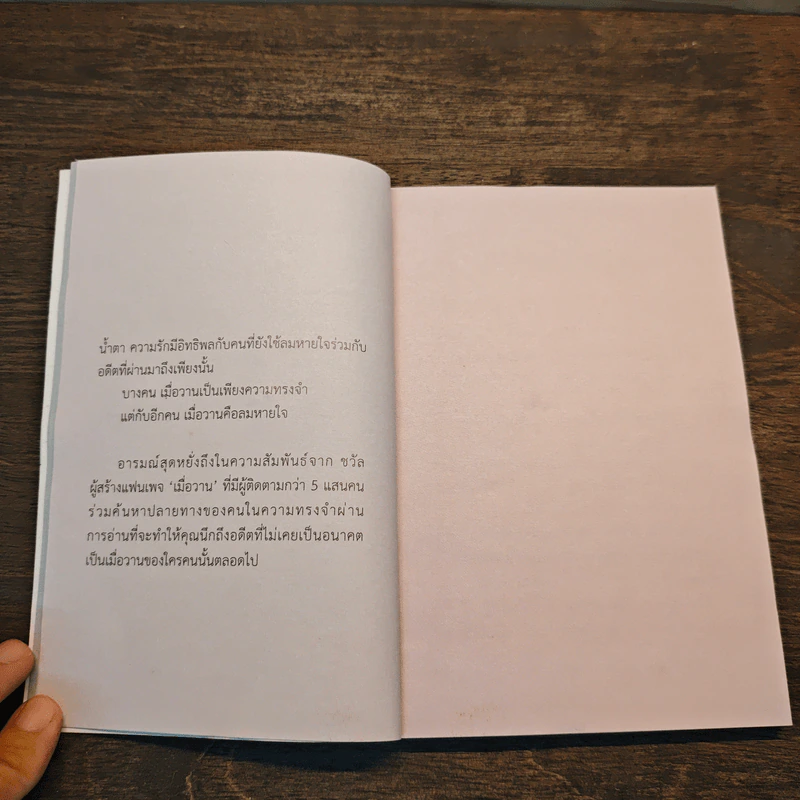 น้ำตา ความรักมีอิทธิพลกับคนที่ยังใช้ลมหายใจร่วมกับ
อดีตที่ผ่านมาถึงเพียงนั้น
บางคน เมื่อวานเป็นเพียงความทรงจำ
แต่กับอีกคน เมื่อวานคือลมหายใจ
อารมณ์สุดหยั่งถึงในความสัมพันธ์จาก ชวัล
ผู้สร้างแฟนเพจ ‘เมื่อวาน’ ที่มีผู้ติดตามกว่า 5 แสนคน
ร่วมค้นหาปลายทางของคนในความทรงจำผ่าน
การอ่านที่จะทำให้คุณนึกถึงอดีตที่ไม่เคยเป็นอนาคต
เป็นเมื่อวานของใครคนนั้นตลอดไป